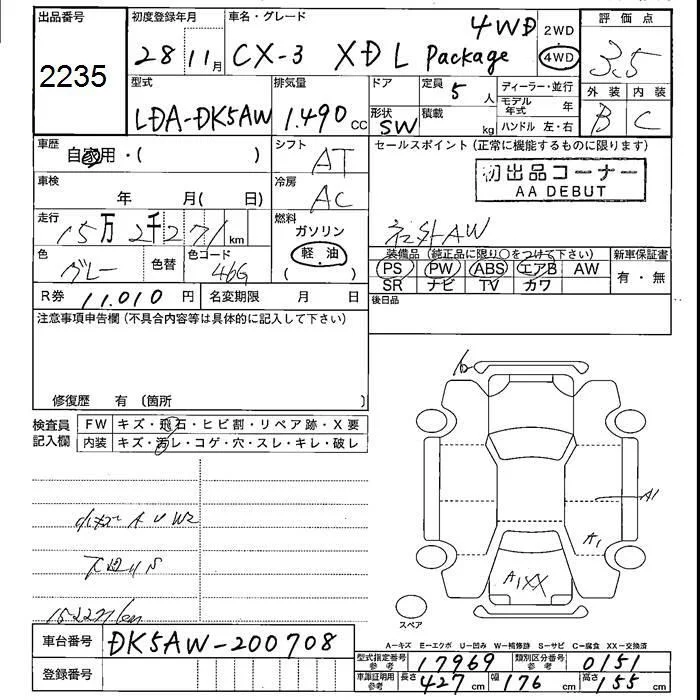 出品番号
2235
初度登録年月
28 11月
車名・グレード
CX-3 XDL Package 4WD
2WD
4WD
評価点
3.5
外装 内装
B C
型式
LDA-DK5AW
排気量
1.490 cc
ドア
形状
SW
定員
5 人
積載
kg
ディーラー・並行
モデル年式 年
ハンドル 左・右
車歴
自家用・( )
シフト
AT
セールスポイント (正常に機能するものに限ります)
初出品コーナー
AA DEBUT
社外AW
車検
年 月( 日)
冷房
AC
走行
15万2千271km
燃料
ガソリン
軽油
( )
色
グレー
色替
色コード
46G
装備品 (純正品に限り○をつけて下さい)
PS PW ABS エアB AW
SR ナビ TV カワ
新車保証書
有・無
R券 11.010 円
名変期限 月 日
後日品
注意事項申告欄 (不具合内容等は具体的に記入して下さい)
修復歴 有 〔箇所 〕
検査員記入欄
FW キズ・飛石・ヒビ割・リペア跡・X要
内装 キズ・汚レ・コゲ・穴・スレ・キレ・破レ
A1
A1
A1XX
スペア
A-キズ E-エクボ U-凹み W-補修跡 S-サビ C-腐食 XX-交換済
車台番号 DK5AW-200708
登録番号
型式指定番号 参考 17969
類別区分番号 参考 0151
車庫証明用 参考 長さ 427 cm 幅 176 cm 高さ 155 cm